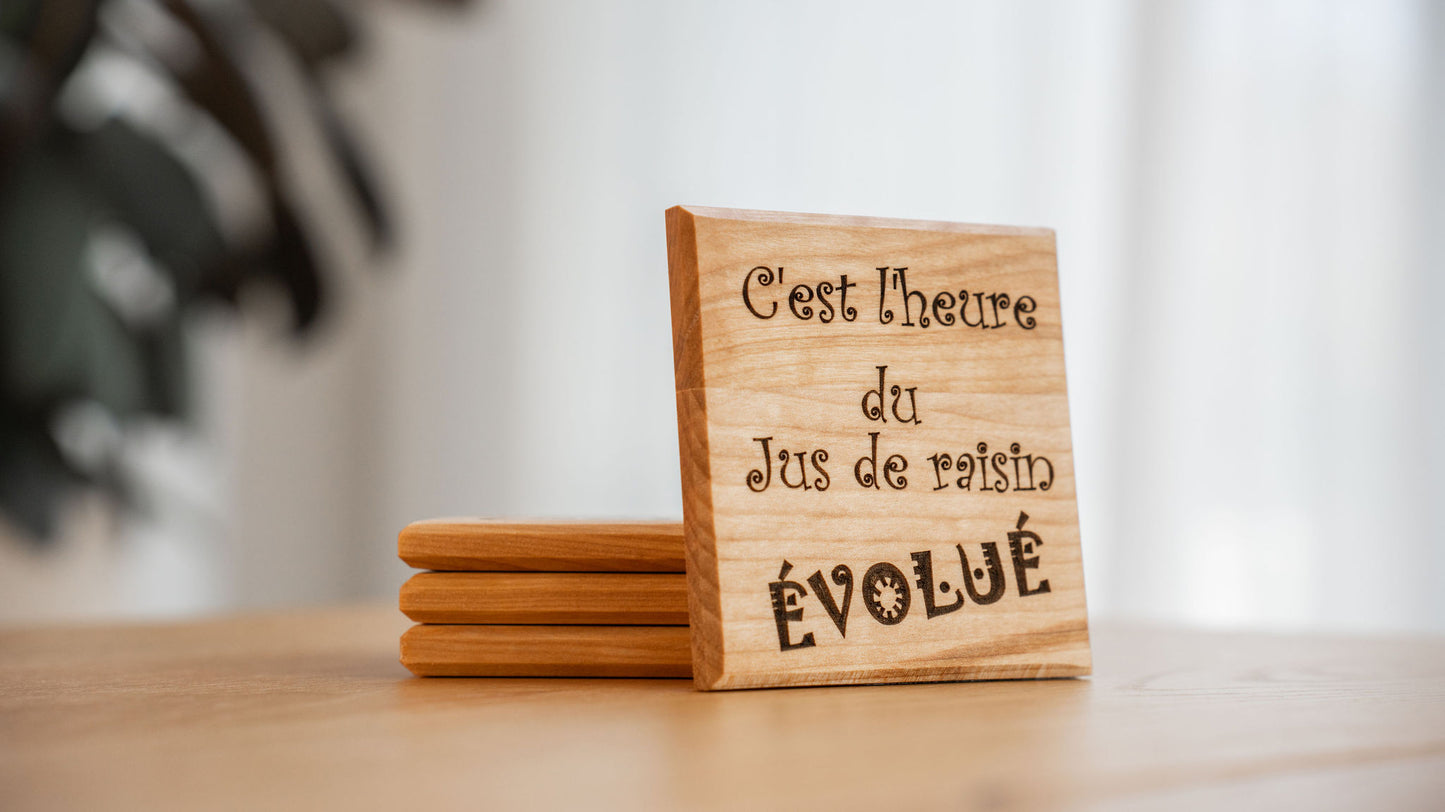 C'est l'heure
du
Jus de raisin
ÉVOLUÉ